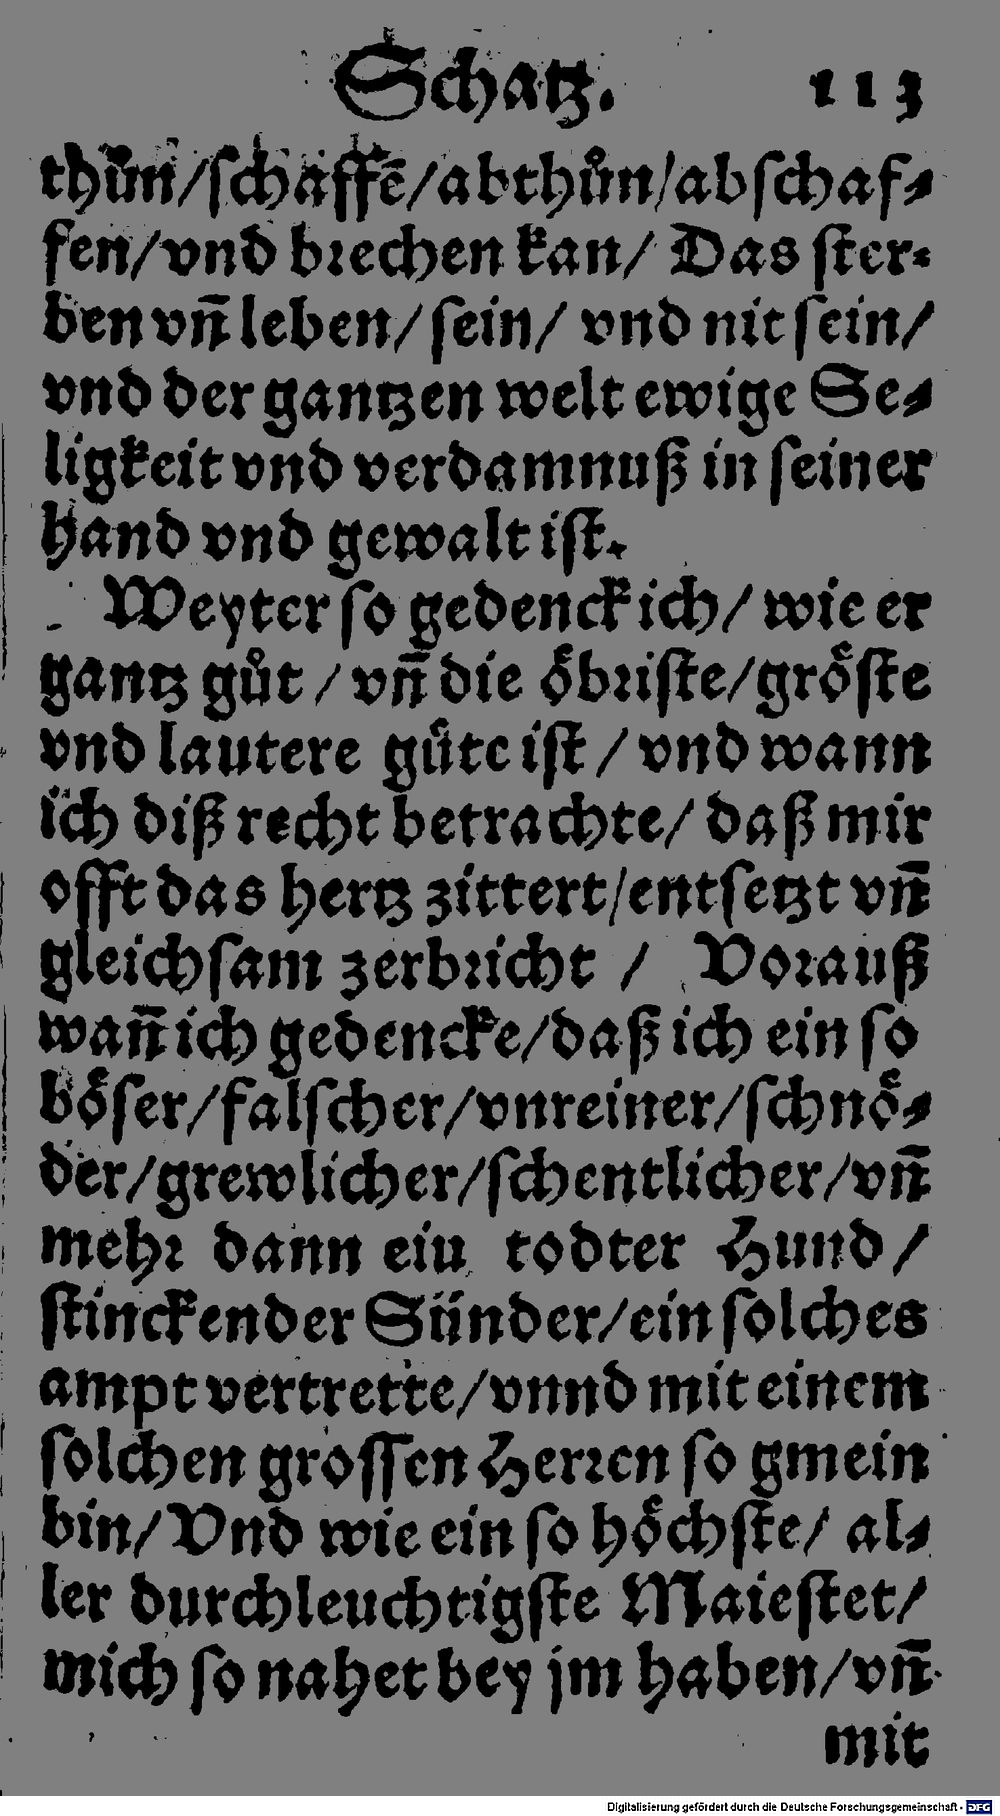 Schatz. 113
thůn/ſchaffē/abthůn/abſchaf⸗
fen/vnd brechen kan/ Das ſter⸗
ben vn̄ leben/ ſein/ vnd nit ſein/
vnd der gantzen welt ewige Se⸗
ligkeit vnd verdamnuß in ſeiner
hand vnd gewalt iſt.
Weyter ſo gedenck ich/ wie er
gantz gůt / vn̄ die oͤbriſte/groͤſte
vnd lautere guͤte iſt / vnd wann
ich diß recht betrachte/ daß mir
offt das hertz zittert/entſetzt vn̄
gleichſam zerbricht / Vorauß
wan̄ ich gedencke/daß ich ein ſo
boͤſer/falſcher/vnreiner/ſchnoͤ⸗
der/grewlicher/ſchentlicher/vn̄
mehr dann eiu todter Hund/
ſtinckender Sünder/ein ſolches
ampt vertrette/vnnd mit einem
ſolchen groſſen Herren ſo gmein
bin/Vnd wie ein ſo hoͤchſte/ al⸗
ler durchleuchtigſte Maieſtet/
mich ſo nahet bey jm haben/vn̄
mit
Digitalisierung gefördert durch die Deutsche Forschungsgemeinschaft - DFG